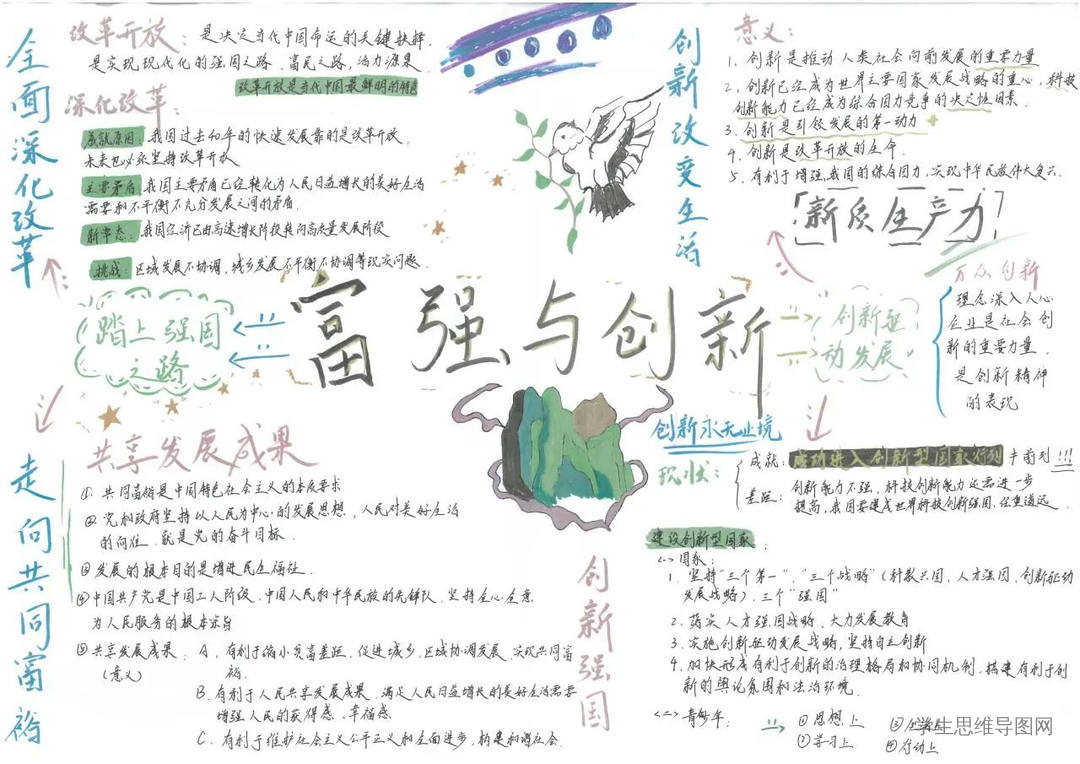 富强与创新
踏上强国
之路
全面深化改革
改革开放：是决定当代中国命运的关键抉择，
是实现现代化的强国之路、富民之路、活力源泉
改革开放是当代中国最鲜明的特色
深化改革：
成就原因：我国过去40年的快速发展靠的是改革开放，
未来也必须坚持改革开放
主要矛盾：我国主要矛盾已经转化为人民日益增长的美好生活
需要和不平衡不充分发展之间的矛盾.
新常态：我国经济已由高速增长阶段转向高质量发展阶段
挑战：区域发展不协调，城乡发展不平衡不协调等现实问题.
走向共同富裕
共享发展成果
① 共同富裕是中国特色社会主义的本质要求
② 党和政府坚持以人民为中心的发展思想，人民对美好生活
的向往，就是党的奋斗目标.
③ 发展的根本目的是增进民生福祉.
④ 中国共产党是中国工人阶级、中国人民和中华民族的先锋队，坚持全心全意
为人民服务的根本宗旨
⑤ 共享发展成果：A、有利于缩小贫富差距，促进城乡、区域协调发展，实现共同富
（意义）
裕.
B、有利于人民共享发展成果，满足人民日益增长的美好生活需要
增强人民的获得感、幸福感
C、有利于维护社会主义公平正义和全面进步，构建和谐社会.
创新驱
动发展
创新改变生活
意义：
1、创新是推动人类社会向前发展的重要力量
2、创新已经成为世界主要国家发展战略的重心，科技
创新能力已经成为综合国力竞争的决定性因素.
3、创新是引领发展的第一动力
4、创新是改革开放的生命.
5、有利于增强我国的综合国力，实现中华民族伟大复兴.
「新质生产力」
万众创新
理念深入人心
企业是社会创
新的重要力量.
是创新精神
的表现
创新永无止境
现状：
成就：成功进入创新型国家行列 半前列!!!
差距：创新能力不强，科技创新能力还需进一步
提高，我国要建成世界科技创新强国，任重道远.
创新强国
建设创新型国家：
<一> 国家：
1. 坚持"三个第一"，"三个战略"（科教兴国，人才强国，创新驱动
发展战略），三个"强国"
2. 落实人才强国战略，大力发展教育
3. 实施创新驱动发展战略，坚持自主创新
4. 加快形成有利于创新的治理格局和协同机制，搭建有利于创
新的舆论氛围和法治环境.
<二> 青少年：
① 思想上
② 学习上
③ 生活上
④ 行动上
学生思维导图网